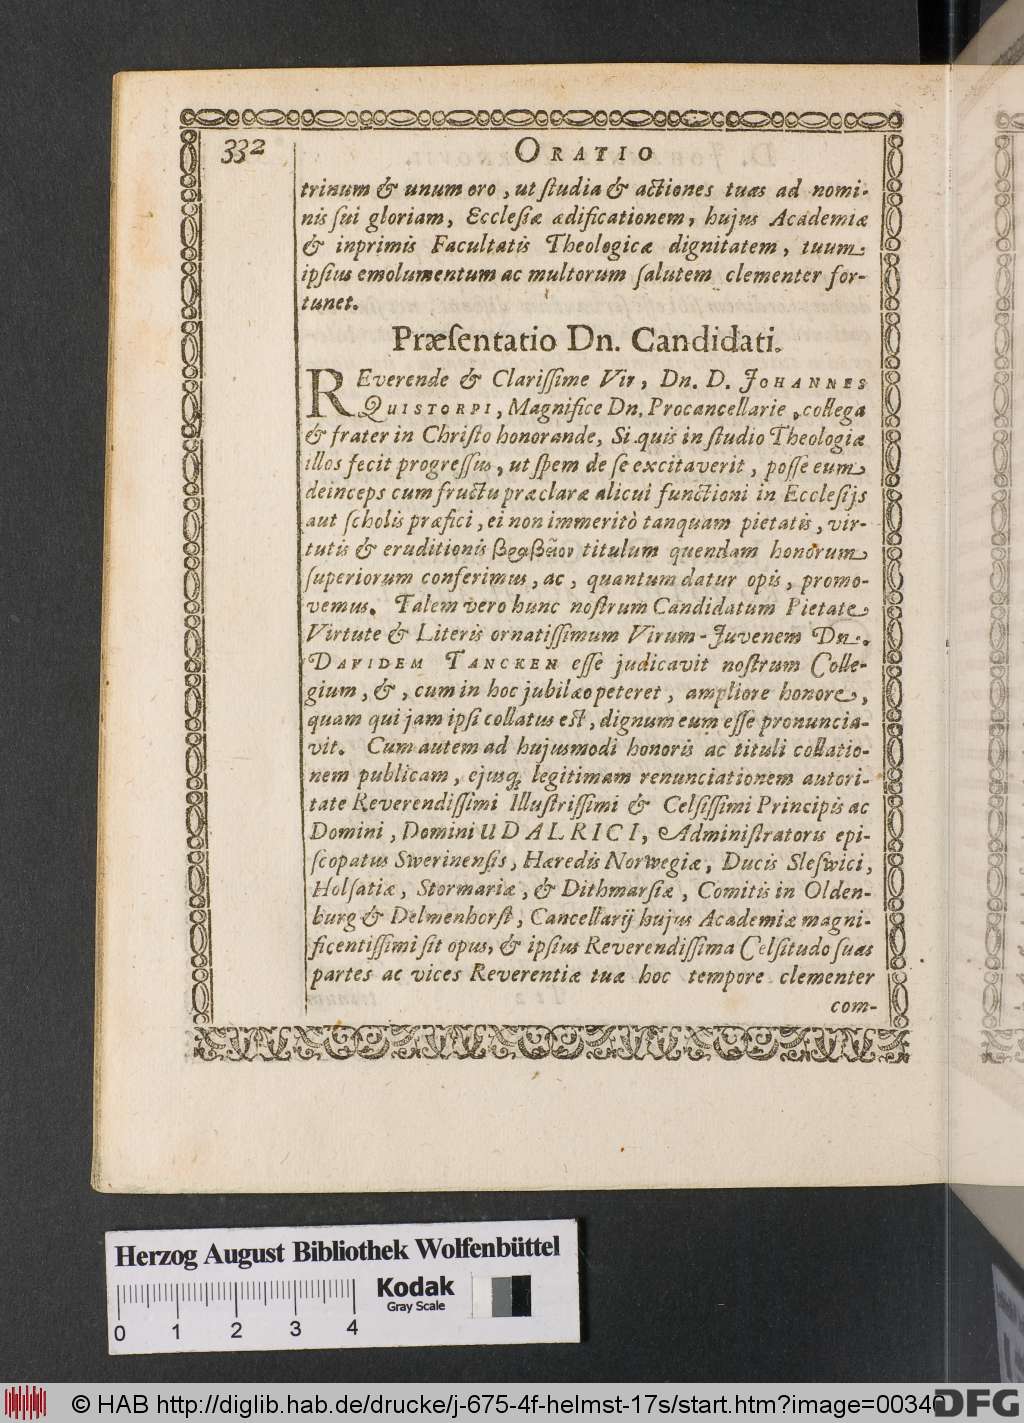 332
ORATIO
trinum & unum oro, ut ſtudia & actiones tuas ad nomi-
nis ſui gloriam, Eccleſiæ ædificationem, hujus Academiæ
& inprimis Facultatis Theologicæ dignitatem, tuum
ipſius emolumentum ac multorum ſalutem clementer for-
tunet.
Præſentatio Dn. Candidati.
REverende & Clariſſime Vir, Dn. D. JOHANNES
QUISTORPI, Magnifice Dn. Procancellarie, collega
& frater in Chriſto honorande, Si quis in ſtudio Theologiæ
illos fecit progreſſus, ut ſpem de ſe excitaverit, poſſe eum
deinceps cum fructu præclaræ alicui functioni in Eccleſijs
aut ſcholis præfici, ei non immeritò tanquam pietatis, vir-
tutis & eruditionis βραβεῖον titulum quendam honorum
ſuperiorum conferimus, ac, quantum datur opis, promo-
vemus. Talem vero hunc noſtrum Candidatum Pietate
Virtute & Literis ornatiſſimum Virum-Juvenem Dn.
DAVIDEM TANCKEN eſſe judicavit noſtrum Colle-
gium, &, cum in hoc jubilæo peteret, ampliore honore,
quam qui jam ipſi collatus eſt, dignum eum eſſe pronuncia-
vit. Cum autem ad hujusmodi honoris ac tituli collatio-
nem publicam, ejusq; legitimam renunciationem autori-
tate Reverendiſſimi Illuſtriſſimi & Celſiſſimi Principis ac
Domini, Domini UDALRICI, Adminiſtratoris epi-
ſcopatus Swerinenſis, Hæredis Norwegiæ, Ducis Sleſwici,
Holſatiæ, Stormariæ, & Dithmarſiæ, Comitis in Olden-
burg & Delmenhorſt, Cancellarij hujus Academiæ magni-
ficentiſſimi ſit opus, & ipſius Reverendiſſima Celſitudo ſuas
partes ac vices Reverentiæ tuæ hoc tempore clementer
com-
Herzog August Bibliothek Wolfenbüttel
Kodak
Gray Scale
0 1 2 3 4
© HAB http://diglib.hab.de/drucke/j-675-4f-helmst-17s/start.htm?image=00340
DFG